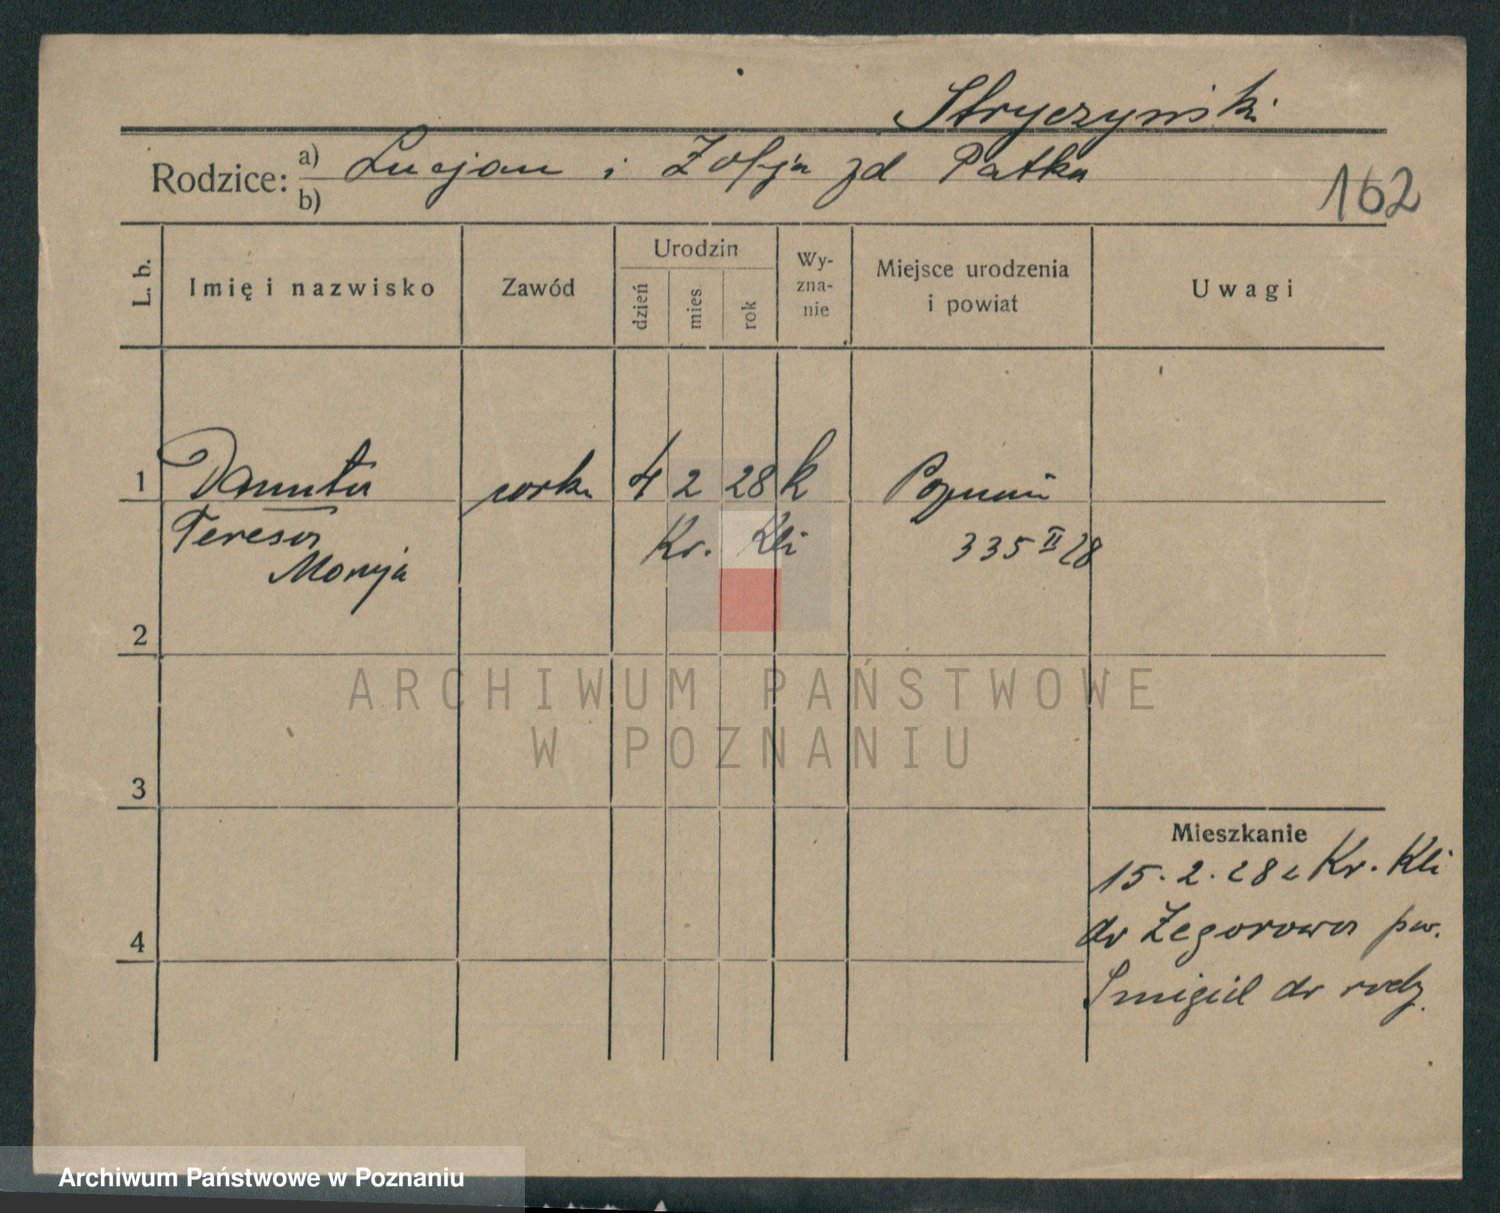 Stryczyński
Rodzice: a) Lucjan i Zofja zd Patka
b)
162
L. b.
Imię i nazwisko
Zawód
Urodzin
dzień
mies.
rok
Wy-
zna-
nie
Miejsce urodzenia
i powiat
Uwagi
1 Danuta corka 4 2 28 k Poznań
Teresa Kr. Kli 335 II 28
Marja
2
ARCHIWUM PAŃSTWOWE
W POZNANIU
3
Mieszkanie
15. 2. 28 z Kr. Kli
do Żegorowa pow.
4
Śmigiel do rodz.
Archiwum Państwowe w Poznaniu